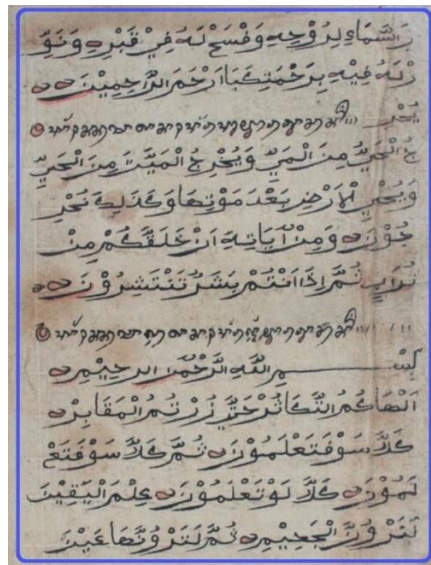 السَّمَاءِ لِرُوْحِهِ وَفْسَحْ لَهُ فِيْ قَبْرِهِ وَنَوِّ
رْلَهُ فِيْهِ بِرَحْمَتِكَ يَا اَرْحَمَ الرَّاحِمِيْنَ
يُخْرِ
جُ الْحَيَّ مِنَ الْمَيِّ وَيُخْرِجُ الْمَيَّتَ مِنَ الْحَيِّ
وَيُحْيِ الْاَرْضَ بَعْدَ مَوْتِهَا وَكَذَلِكَ تُخْرَ
جُوْنَ وَمِنْ اٰيَاتِهِ اَنْ خَلَقَكُمْ مِنْ
تُرَابٍ ثُمَّ اِذَا اَنْتُمْ بَشَرٌ تَنْتَشِرُوْنَ
بِسْمِ اللّٰهِ الرَّحْمٰنِ الرَّحِيْمِ
اَلْهَاكُمُ التَّكَاثُرْ حَتَّى زُرْتُمُ الْمَقَابِرْ
كَلَّا سَوْفَ تَعْلَمُوْنَ ثُمَّ كَلَّا سَوْفَ تَعْ
لَمُوْنَ كَلَّا لَوْ تَعْلَمُوْنَ عِلْمَ الْيَقِيْنَ
لَتَرَوُنَّ الْجَحِيْمَ ثُمَّ لَتَرَوُنَّهَا عَيْنَ